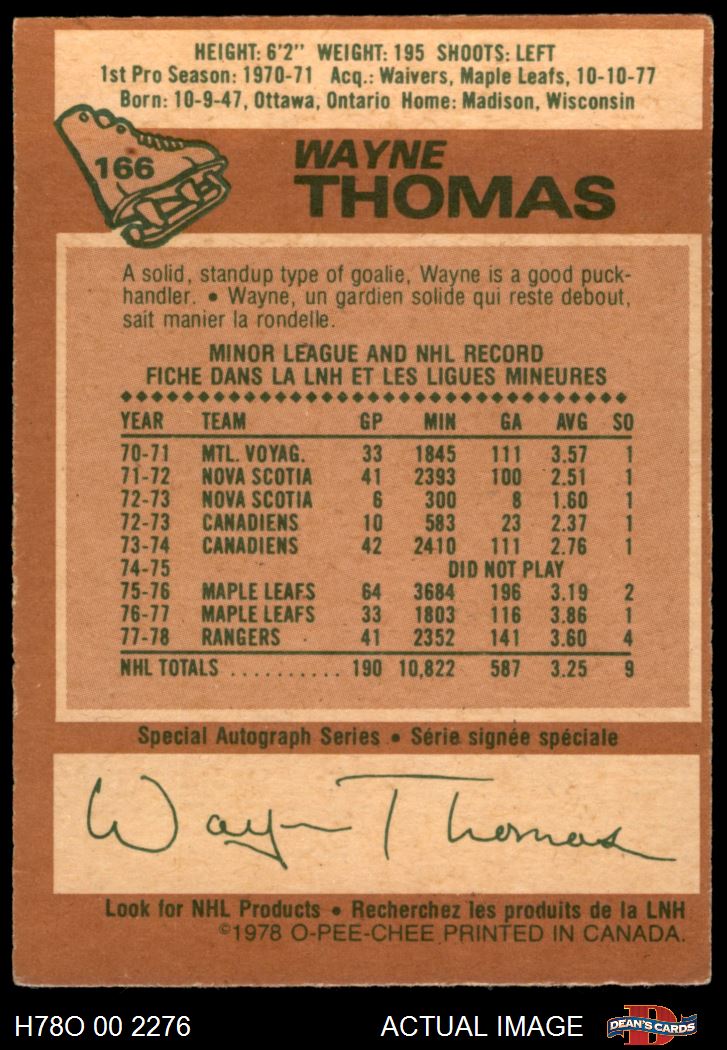 HEIGHT: 6'2" WEIGHT: 195 SHOOTS: LEFT
1st Pro Season: 1970-71 Acq.: Waivers, Maple Leafs, 10-10-77
Born: 10-9-47, Ottawa, Ontario Home: Madison, Wisconsin
166
WAYNE
THOMAS
A solid, standup type of goalie, Wayne is a good puck-
handler. • Wayne, un gardien solide qui reste debout,
sait manier la rondelle.
MINOR LEAGUE AND NHL RECORD
FICHE DANS LA LNH ET LES LIGUES MINEURES
YEAR TEAM GP MIN GA AVG SO
70-71 MTL. VOYAG. 33 1845 111 3.57 1
71-72 NOVA SCOTIA 41 2393 100 2.51 1
72-73 NOVA SCOTIA 6 300 8 1.60 1
72-73 CANADIENS 10 583 23 2.37 1
73-74 CANADIENS 42 2410 111 2.76 1
74-75 DID NOT PLAY
75-76 MAPLE LEAFS 64 3684 196 3.19 2
76-77 MAPLE LEAFS 33 1803 116 3.86 1
77-78 RANGERS 41 2352 141 3.60 4
NHL TOTALS .......... 190 10,822 587 3.25 9
Special Autograph Series • Série signée spéciale
Wayne Thomas
Look for NHL Products • Recherchez les produits de la LNH
©1978 O-PEE-CHEE PRINTED IN CANADA.
H78O 00 2276 ACTUAL IMAGE DEAN'S CARDS